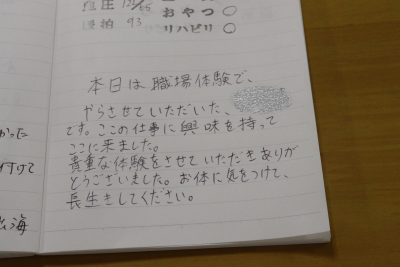 血圧 125/65
脈拍 93
おやつ○
リハビリ○
本日は職場体験で、
やらさせていただいた、
です。ここの仕事に興味を持って
ここに来ました。
貴重な体験をさせていただきありが
とうございました。お体に気をつけて、
長生きしてください。
かった
付けて